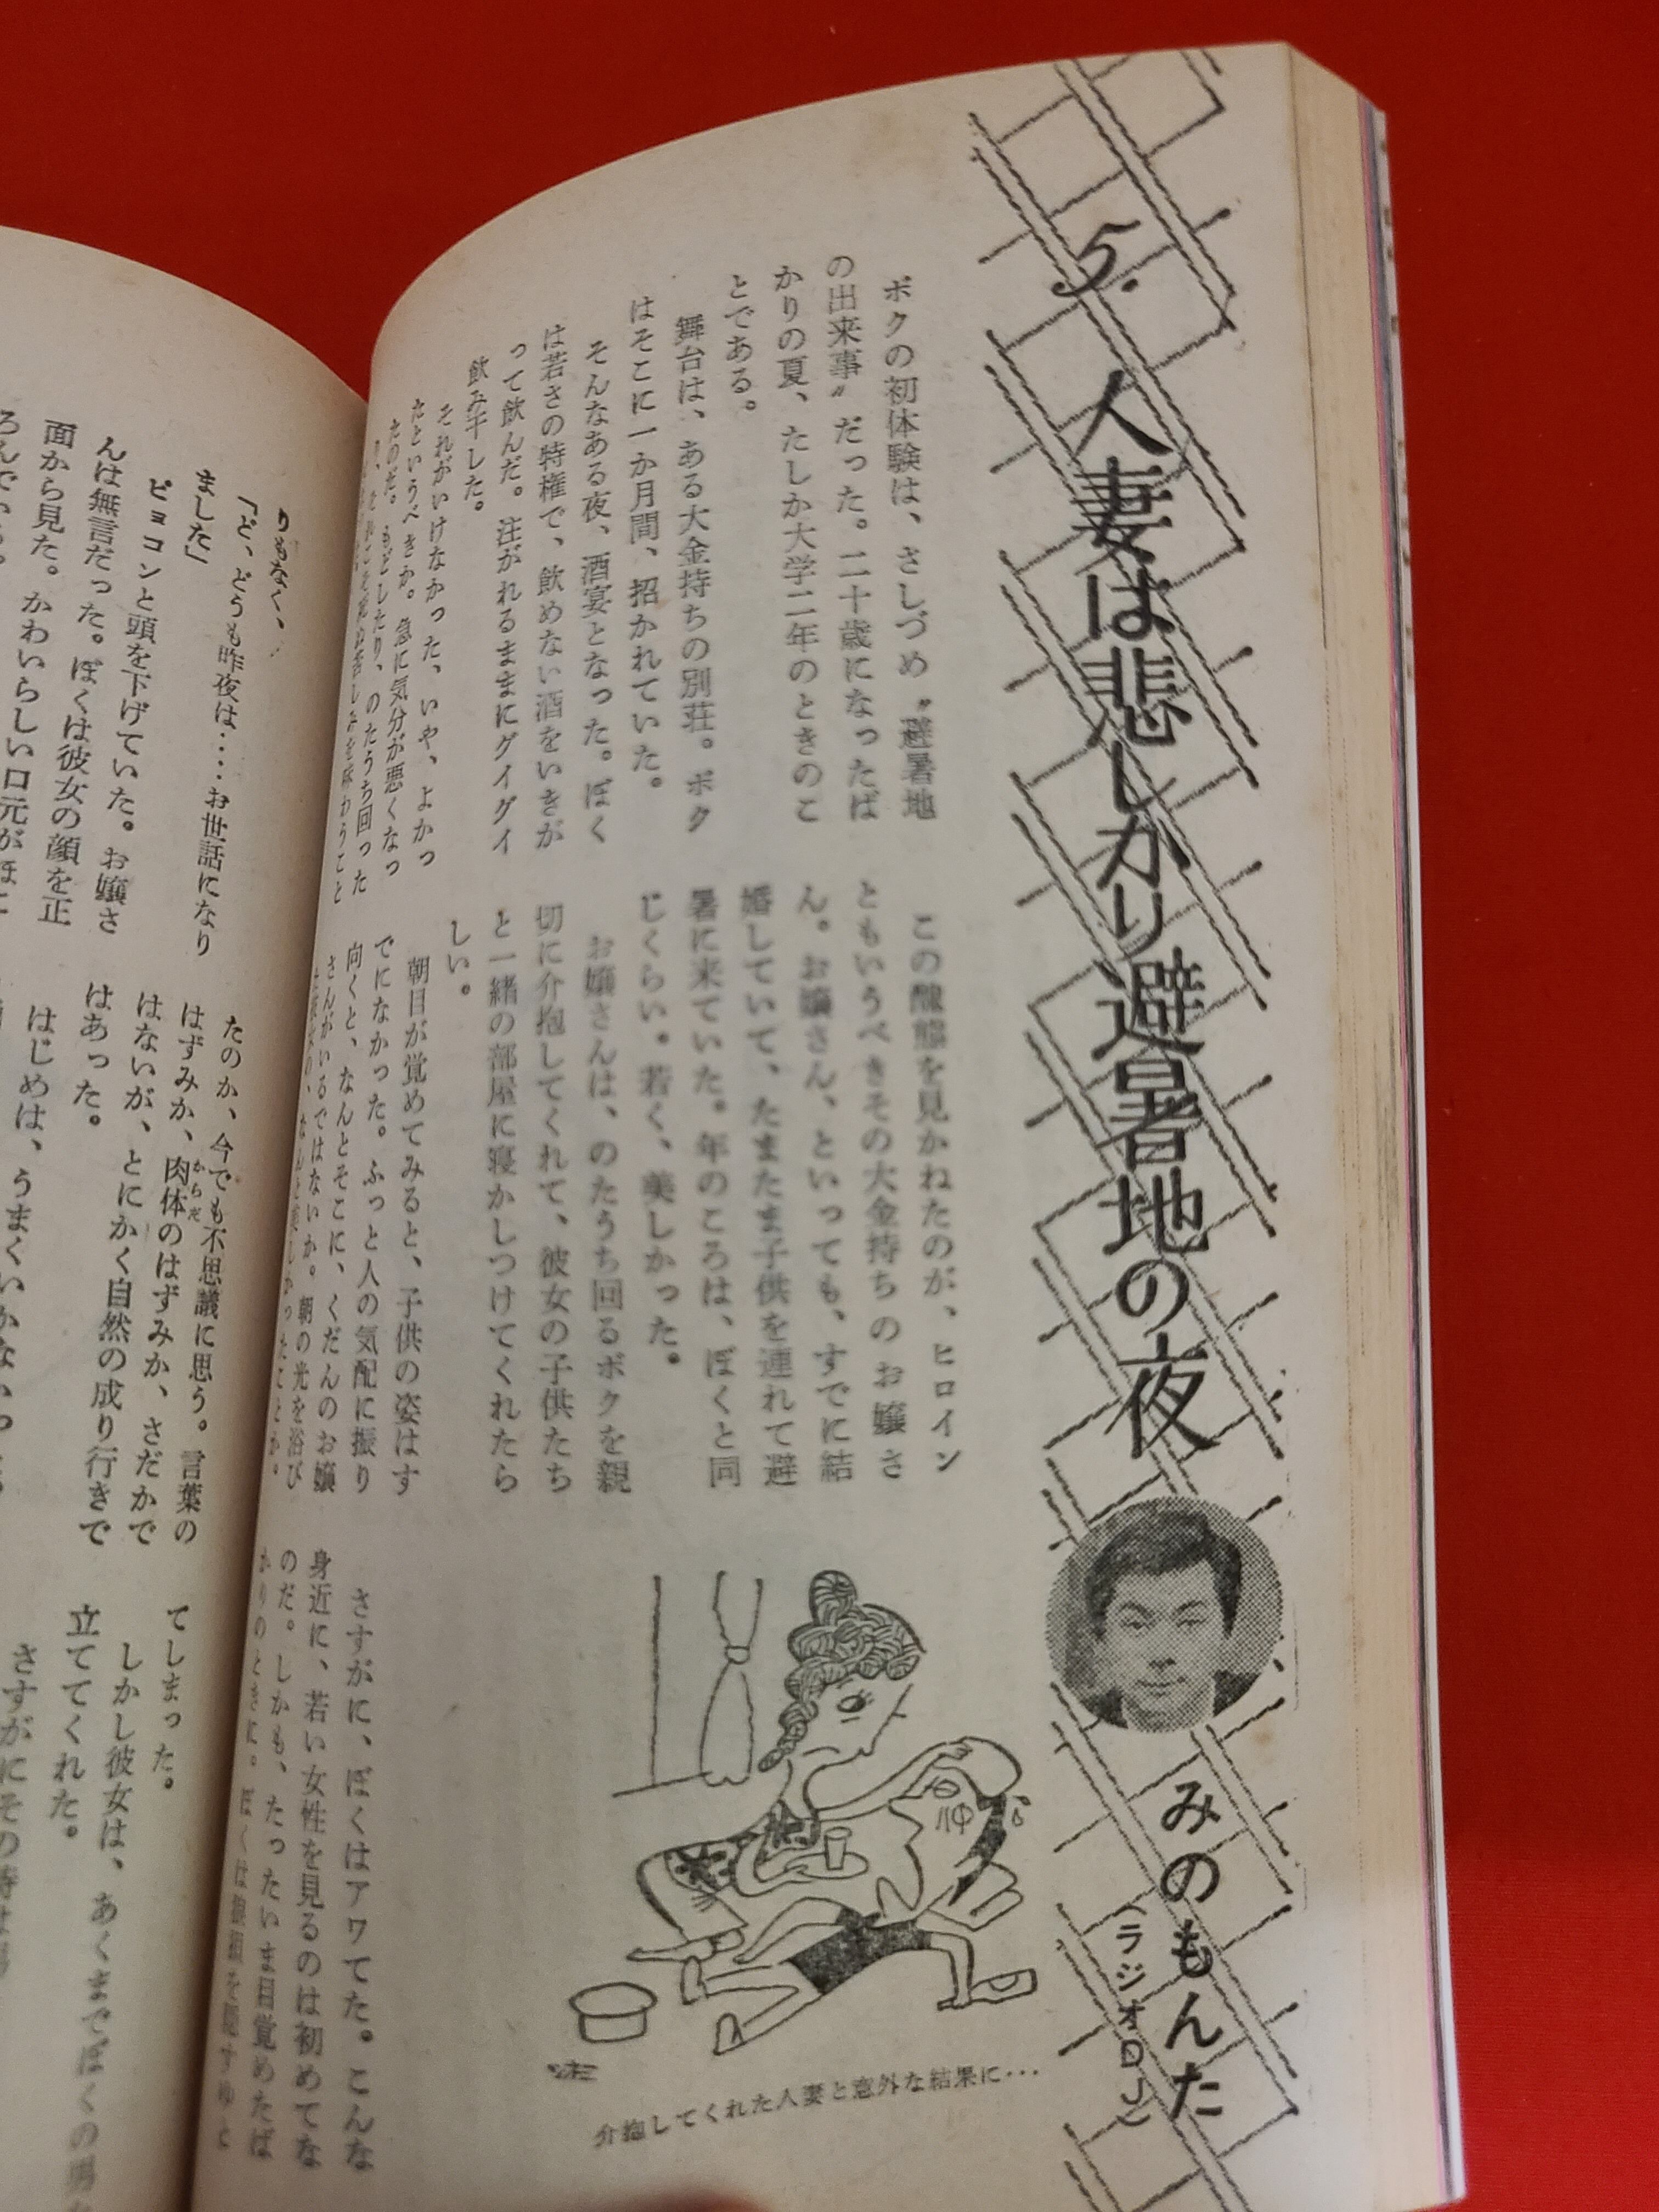 5.
人妻は悲しかり避暑地の夜
みのもんた
(ラジオDJ)
ボクの初体験は、さしづめ〝避暑地
の出来事〟だった。二十歳になったば
かりの夏、たしか大学二年のときのこ
とである。
舞台は、ある大金持ちの別荘。ボク
はそこに一か月間、招かれていた。
そんなある夜、酒宴となった。ぼく
は若さの特権で、飲めない酒をいきが
って飲んだ。注がれるままにグイグイ
飲み干した。
それがいけなかった、いや、よかっ
たというべきか。急に気分が悪くなっ
たのだ。もどしたり、のたうち回った
この醜態を見かねたのが、ヒロイン
ともいうべきその大金持ちのお嬢さ
ん。お嬢さん、といっても、すでに結
婚していて、たまたま子供を連れて避
暑に来ていた。年のころは、ぼくと同
じくらい。若く、美しかった。
お嬢さんは、のたうち回るボクを親
切に介抱してくれて、彼女の子供たち
と一緒の部屋に寝かしつけてくれたら
しい。
朝目が覚めてみると、子供の姿はす
でになかった。ふっと人の気配に振り
向くと、なんとそこに、くだんのお嬢
さんがいるではないか。朝の光を浴び
介抱してくれた人妻と意外な結果に…
さすがに、ぼくはアワてた。こんな
身近に、若い女性を見るのは初めてな
のだ。しかも、たったいま目覚めたば
かりのときに。ぼくは
りもなく、
「ど、どうも昨夜は……お世話になり
ました」
ピョコンと頭を下げていた。お嬢さ
んは無言だった。ぼくは彼女の顔を正
面から見た。かわいらしい口元が
たのか、今でも不思議に思う。言葉の
はずみか、肉体のはずみか、さだかで
からだ
はないが、とにかく自然の成り行きで
はあった。
はじめは、うまくいかない
てしまった。
しかし彼女は、あくまでぼくの男
立ててくれた。
さすがにその